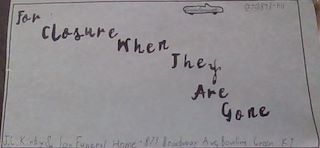 For
Closure
When
They
Are
Gone
J.C. Kirby & Son Funeral Home - 832 Broadway Ave, Bowling Green, KY